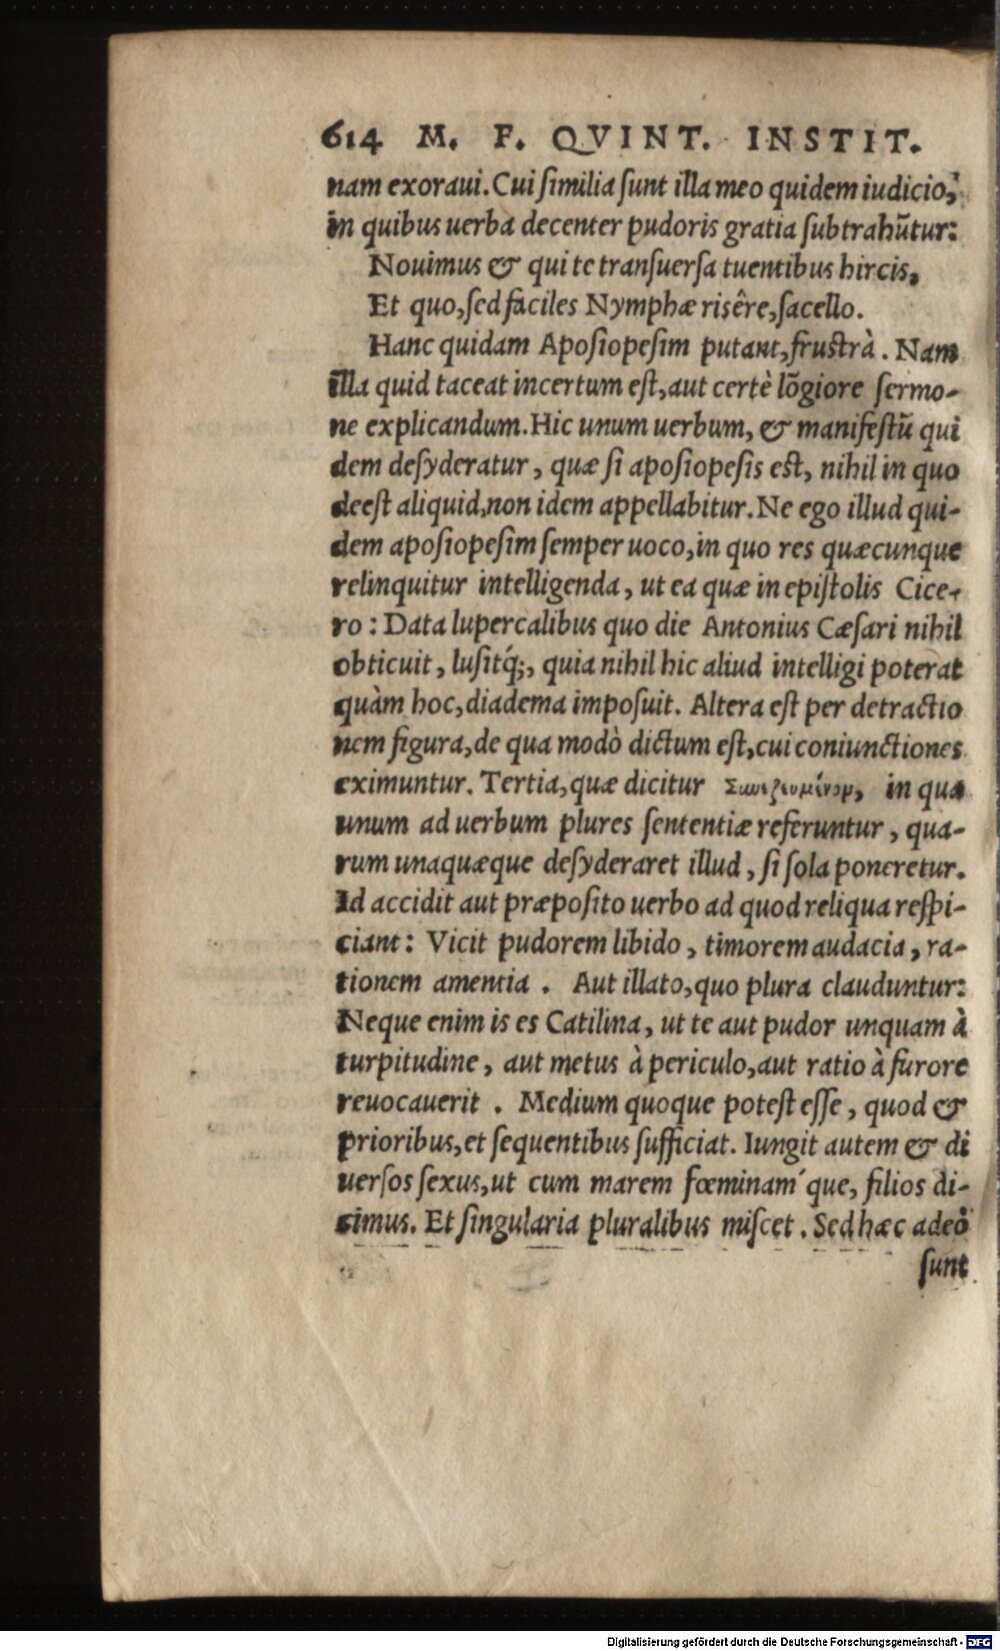 614 M. F. QVINT. INSTIT.
nam exoraui. Cui ſimilia ſunt illa meo quidem iudicio,
in quibus uerba decenter pudoris gratia ſubtrahũtur:
Nouimus & qui te tranſuerſa tuentibus hircis,
Et quo, ſed faciles Nymphæ risêre, ſacello.
Hanc quidam Apoſiopeſim putant, fruſtrà. Nam
illa quid taceat incertum eſt, aut certè lõgiore ſermo-
ne explicandum. Hic unum uerbum, & manifeſtũ qui
dem deſyderatur, quæ ſi apoſiopeſis eſt, nihil in quo
deeſt aliquid, non idem appellabitur. Ne ego illud qui-
dem apoſiopeſim ſemper uoco, in quo res quæcunque
relinquitur intelligenda, ut ea quæ in epiſtolis Cice-
ro: Data lupercalibus quo die Antonius Cæſari nihil
obticuit, luſitq́;, quia nihil hic aliud intelligi poterat
quàm hoc, diadema impoſuit. Altera eſt per detractio
nem figura, de qua modò dictum eſt, cui coniunctiones
eximuntur. Tertia, quæ dicitur in qua
unum ad uerbum plures ſententiæ referuntur, qua-
rum unaquæque deſyderaret illud, ſi ſola poneretur.
Id accidit aut præpoſito uerbo ad quod reliqua reſpi-
ciant: Vicit pudorem libido, timorem audacia, ra-
tionem amentia. Aut illato, quo plura clauduntur:
Neque enim is es Catilina, ut te aut pudor unquam à
turpitudine, aut metus à periculo, aut ratio à furore
reuocauerit. Medium quoque poteſt eſſe, quod &
prioribus, et ſequentibus ſufficiat. Iungit autem & di
uerſos ſexus, ut cum marem fœminam´que, filios di-
cimus. Et ſingularia pluralibus miſcet. Sed hæc adeò
ſunt
Digitalisierung gefördert durch die Deutsche Forschungsgemeinschaft - DFG